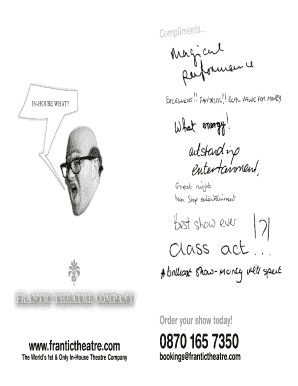 IN-HOUSE WHAT?
FRANTIC THEATRE COMPANY
www.frantictheatre.com
The World's 1st & Only In-House Theatre Company
Compliments...
Magical
Performance
EXCELLENT!! FANTASTIC!! GOOD VALUE FOR MONEY
What energy!
outstanding
entertainment,
Great night
Non Stop entertainment
Best show ever !?!
Class act...
A brilliant show - money well spent
Order your show today!
0870 165 7350
bookings@frantictheatre.com